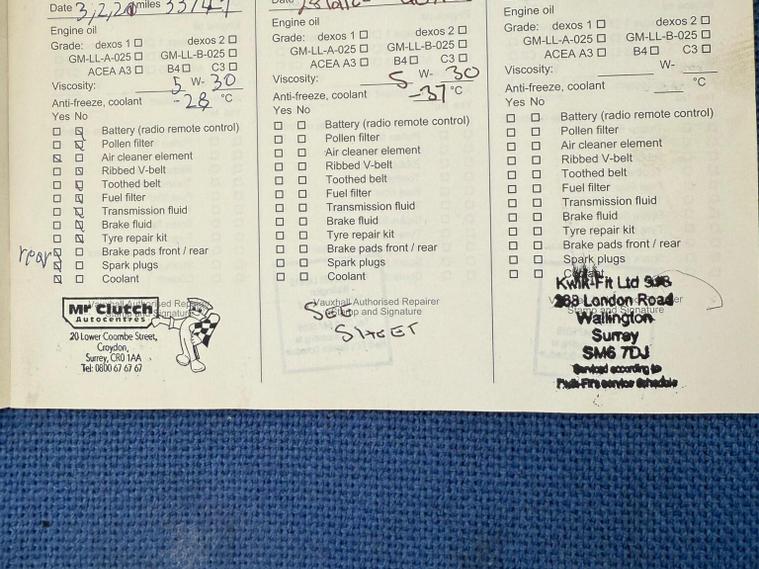 Date 3,2,20 miles 33747
Engine oil
Grade: dexos 1 dexos 2
GM-LL-A-025 GM-LL-B-025
ACEA A3 B4 C3
Viscosity: 5 W- 30
Anti-freeze, coolant -28 °C
Yes No
Battery (radio remote control)
Pollen filter
Air cleaner element
Ribbed V-belt
Toothed belt
Fuel filter
Transmission fluid
Brake fluid
Tyre repair kit
rear Brake pads front / rear
Spark plugs
Coolant
Vauxhall Authorised Repairer
Stamp and Signature
Mr Clutch
Autocentres
20 Lower Coombe Street,
Croydon,
Surrey, CR0 1AA
Tel: 0800 67 67 67
Engine oil
Grade: dexos 1 dexos 2
GM-LL-A-025 GM-LL-B-025
ACEA A3 B4 C3
Viscosity: 5 W- 30
Anti-freeze, coolant -37 °C
Yes No
Battery (radio remote control)
Pollen filter
Air cleaner element
Ribbed V-belt
Toothed belt
Fuel filter
Transmission fluid
Brake fluid
Tyre repair kit
Brake pads front / rear
Spark plugs
Coolant
Vauxhall Authorised Repairer
Stamp and Signature
SEE
SHEET
Engine oil
Grade: dexos 1 dexos 2
GM-LL-A-025 GM-LL-B-025
ACEA A3 B4 C3
Viscosity: W-
Anti-freeze, coolant °C
Yes No
Battery (radio remote control)
Pollen filter
Air cleaner element
Ribbed V-belt
Toothed belt
Fuel filter
Transmission fluid
Brake fluid
Tyre repair kit
Brake pads front / rear
Spark plugs
Coolant
Stamp and Signature
Kwik-Fit Ltd
288 London Road
Wallington
Surrey
SM6 7DJ
Serviced according to
Kwik-Fit's service schedule